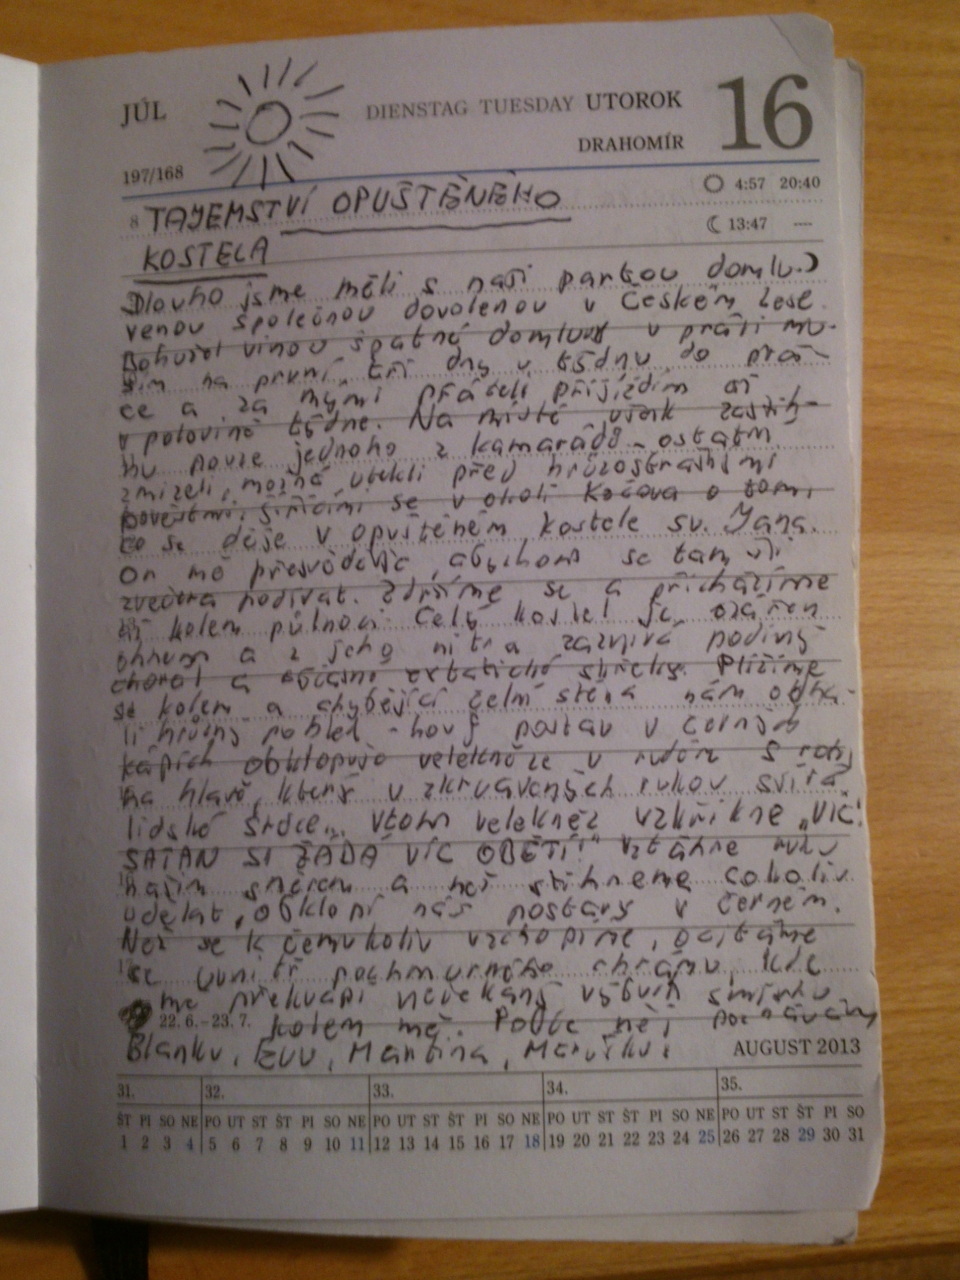 JÚL
DIENSTAG TUESDAY UTOROK
16
DRAHOMÍR
197/168
4:57 20:40
8 TAJEMSTVÍ OPUŠTĚNÉHO
13:47 ---
KOSTELA
Dlouho jsme měli s naší partou domlu-
venou společnou dovolenou v Českém lese.
Bohužel vinou špatné domluvy v práci mu-
sím na první tři dny v týdnu do prá-
ce a za mými přáteli přijíždím až
v polovině týdne. Na místě však zastih-
nu pouze jednoho z kamarádů - ostatní
zmizeli, možná utekli před hrůzostrašnými
pověstmi, šířícími se v okolí o tom,
co se děje v opuštěném kostele sv. Jana.
On mě přesvědčil, abychom se tam šli
zvečera podívat. Zdržíme se a přicházíme
až kolem půlnoci. Celý kostel je ozářen
ohněm a z jeho nitra zaznívá podivný
chorál a občasné extatické skřeky. Plížíme
se kolem a chybějící čelní stěna nám odha-
lí hrůzný pohled - houf postav v černých
kápích obklopuje velekněze v rudém s rohy
na hlavě, který v zkrvavených rukou svírá
lidské srdce... Vtom velekněz vzkřikne „VÍC!
SATAN SI ŽÁDÁ VÍC OBĚTÍ!" Vztáhne ruku
naším směrem a než stihneme cokoliv
udělat, obklopí nás postavy v černém.
Než se k čemukoliv vzchopíme, ocitáme
se uvnitř pochmurného chrámu, kde
mě překvapí nečekaný výbuch smíchu
22. 6. – 23. 7. kolem mě. Podle něj poznávám
Blanku, Evu, Martina, Marušku!
AUGUST 2013
31. 32. 33. 34. 35.
ŠT PI SO NE PO UT ST ŠT PI SO NE PO UT ST ŠT PI SO NE PO UT ST ŠT PI SO NE PO UT ST ŠT PI SO
1 2 3 4 5 6 7 8 9 10 11 12 13 14 15 16 17 18 19 20 21 22 23 24 25 26 27 28 29 30 31